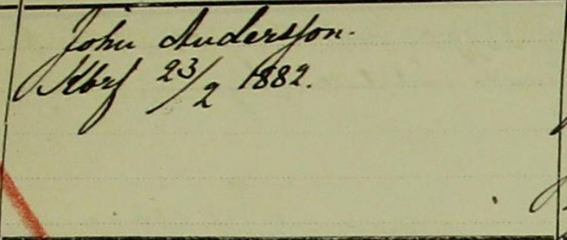 John Andersson.
Kbrf 23/2 1882.